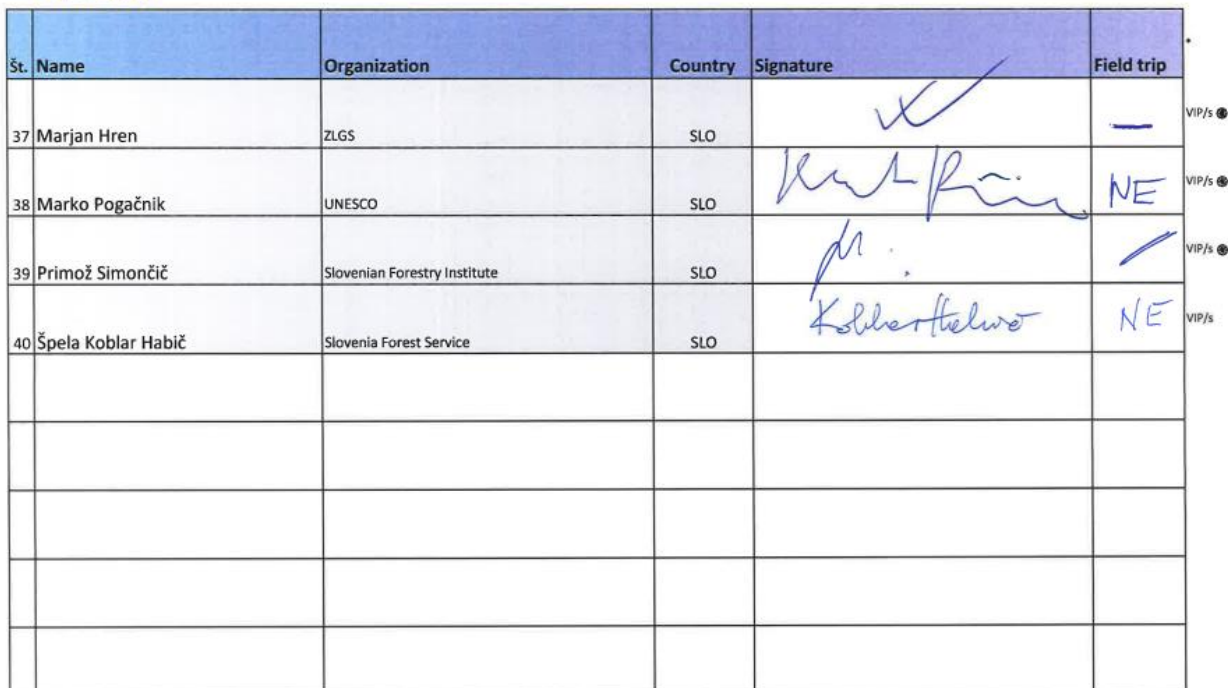 Št. Name Organization Country Signature Field trip
37 Marjan Hren ZLGS SLO — VIP/s
38 Marko Pogačnik UNESCO SLO NE VIP/s
39 Primož Simončič Slovenian Forestry Institute SLO VIP/s
40 Špela Koblar Habič Slovenia Forest Service SLO NE VIP/s